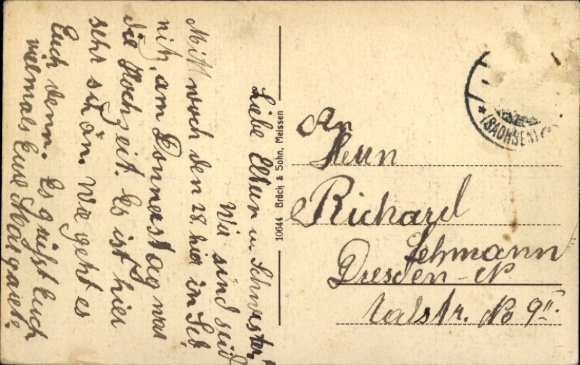 Liebe Eltern u. Schwester.
Wir sind seid
Mittwoch den 28. hier in Seb
nitz, am Donnerstag war
die Hochzeit. Es ist hier
sehr schön. Wie geht es
Euch denn. Es grüßt Euch
vielmals Eure Margarete.
10644 Brück & Sohn, Meissen
(SACHSEN)
An
Herrn
Richard
Lehmann
Dresden-N
Talstr. No 9II.